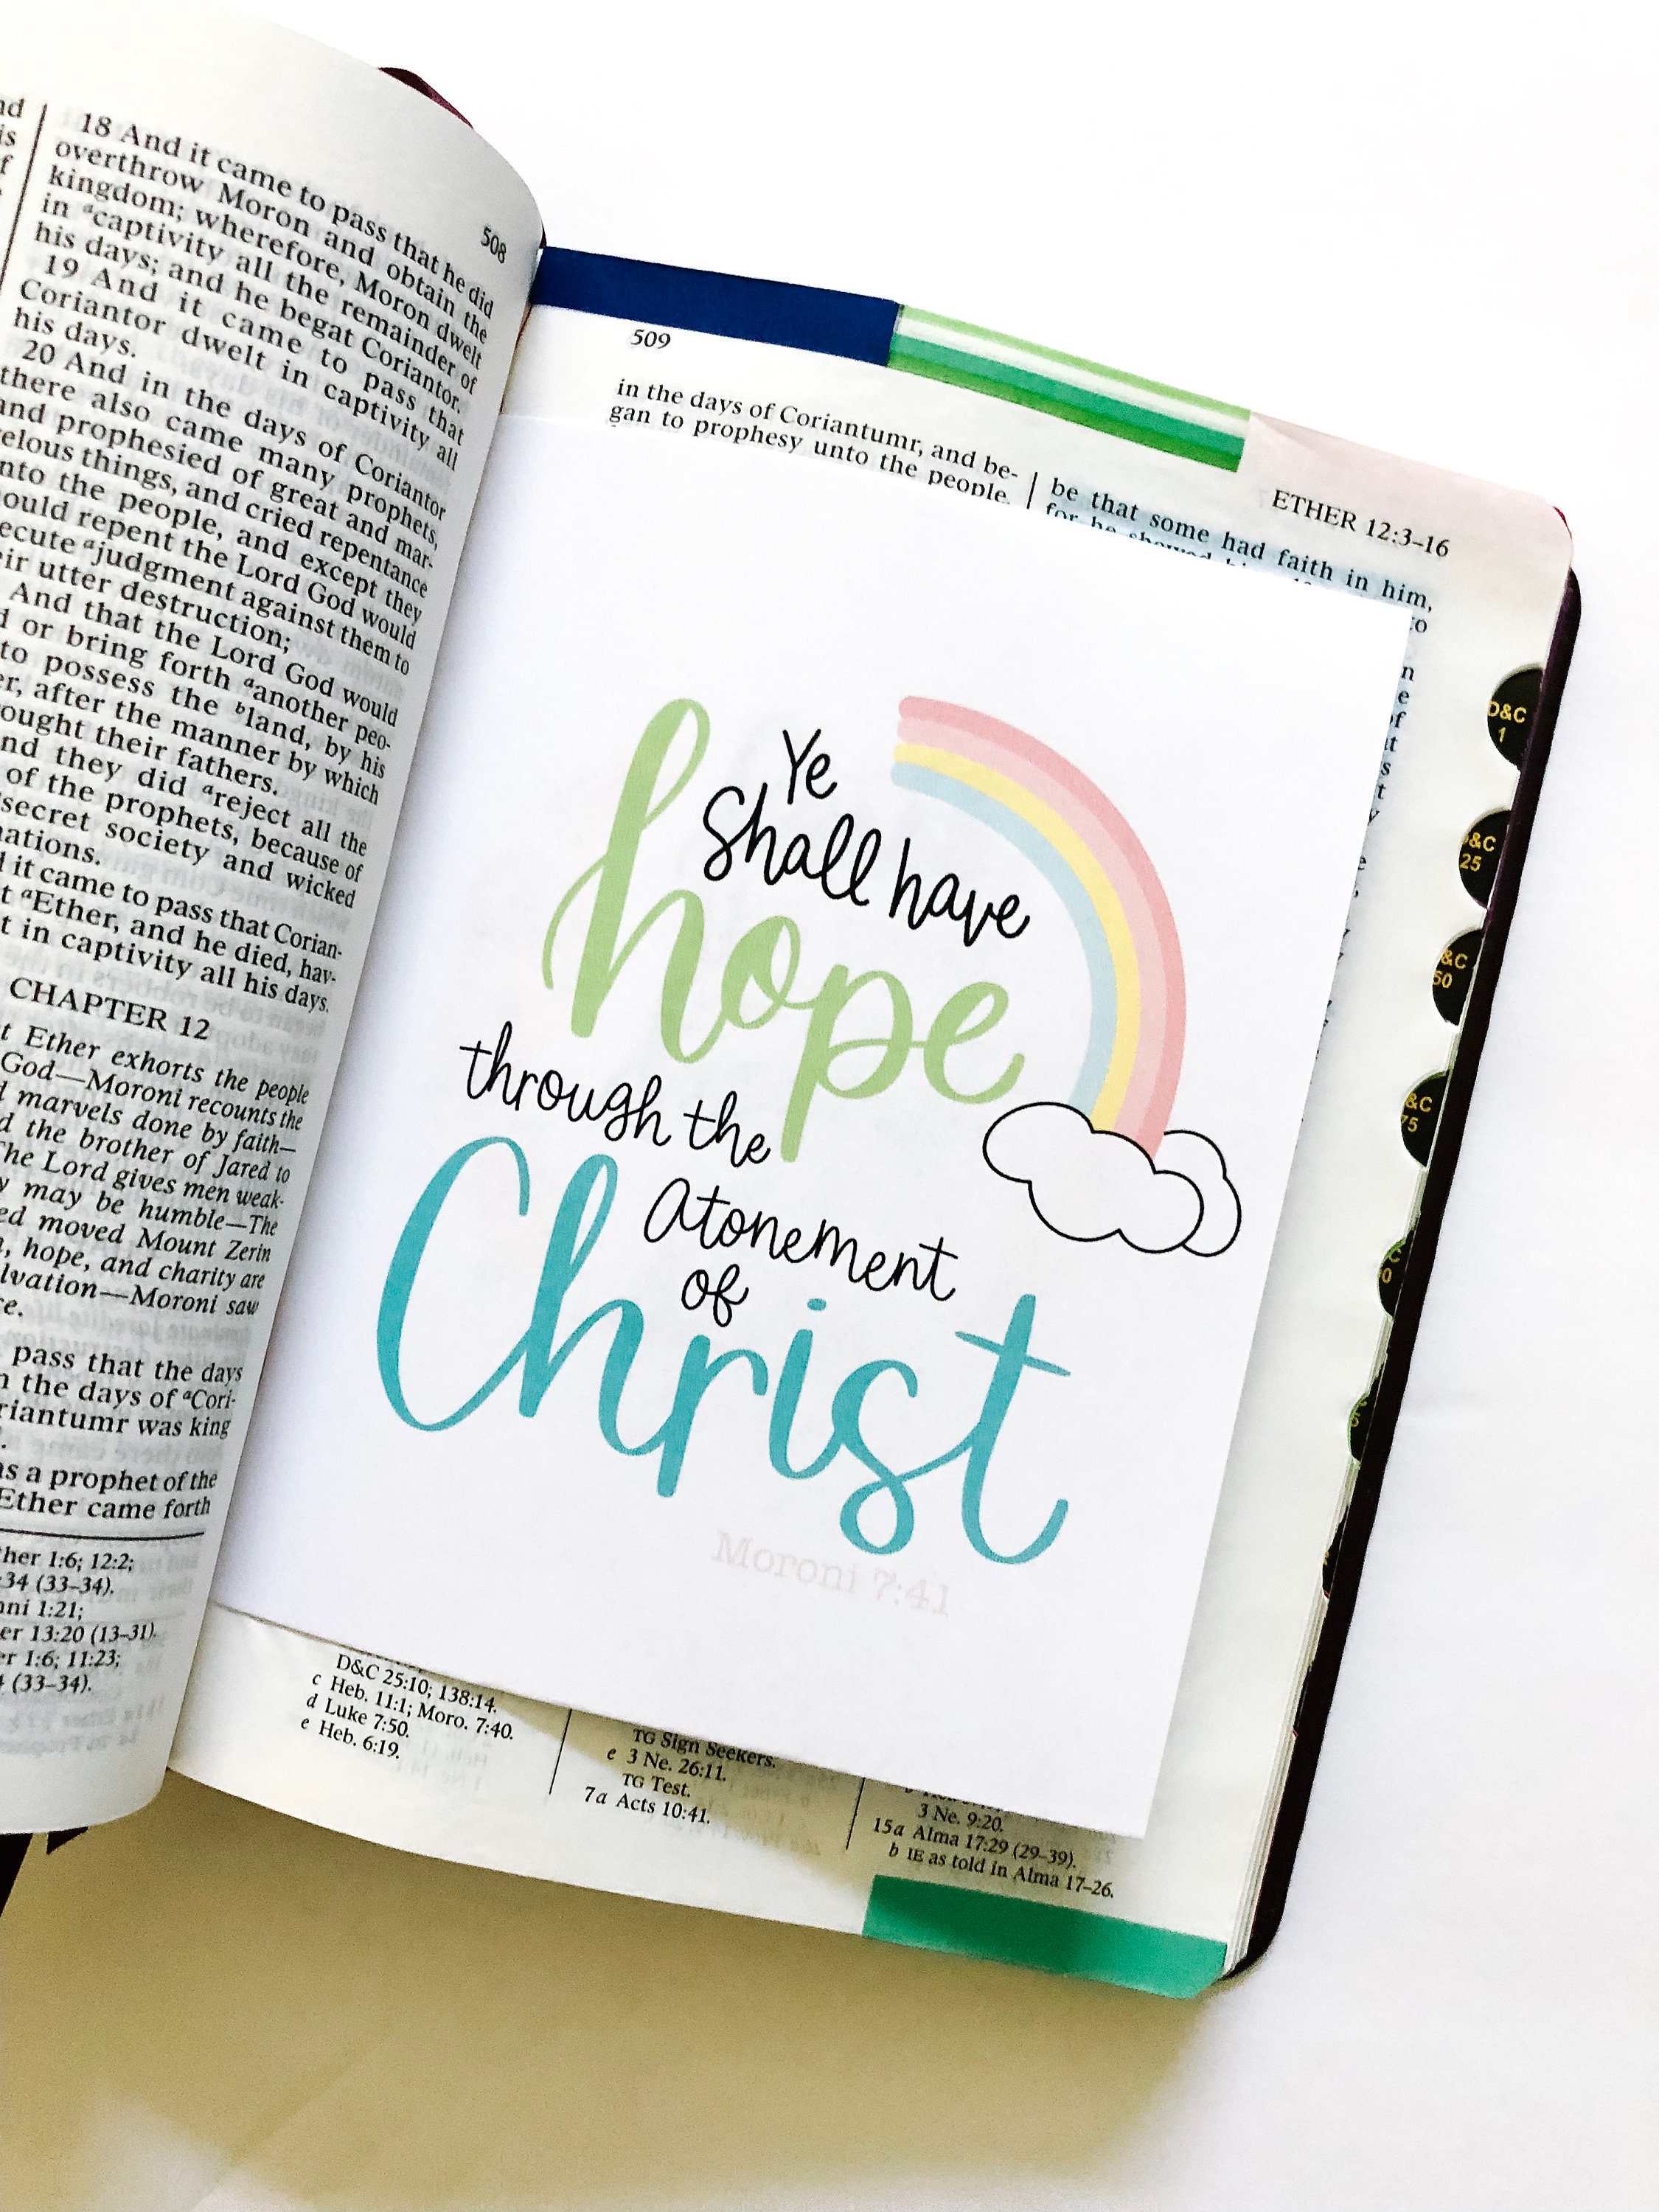 508
18 And it came to pass that he did
overthrow Moron and obtain the
kingdom; wherefore, Moron dwelt
in ᵃcaptivity all the remainder of
his days; and he begat Coriantor.
19 And it came to pass that
Coriantor dwelt in captivity all
his days.
20 And in the days of Coriantor
there also came many prophets,
and prophesied of great and mar-
velous things, and cried repentance
unto the people, and except they
should repent the Lord God would
execute ᵃjudgment against them to
their utter destruction;
And that the Lord God would
or bring forth ᵃanother peo-
to possess the ᵇland, by his
after the manner by which
brought their fathers.
and they did ᵃreject all the
of the prophets, because of
secret society and wicked
it came to pass that Corian-
ᵃEther, and he died, hav-
in captivity all his days.
CHAPTER 12
Ether exhorts the people
God—Moroni recounts the
marvels done by faith—
the brother of Jared to
The Lord gives men weak-
may be humble—The
moved Mount Zerin
hope, and charity are
Moroni saw
pass that the days
the days of ᵃCori-
was king
a prophet of the
Ether came forth
1:6; 12:2;
34 (33–34).
1:21;
13:20 (13–31).
1:6; 11:23;
(33–34).
509
ETHER 12:3–16
in the days of Coriantumr, and be-
gan to prophesy unto the people.
be that some had faith in him,
for he showed
Ye
Shall have
hope
through the
Atonement
of
Christ
Moroni 7:41
D&C 25:10; 138:14.
c Heb. 11:1; Moro. 7:40.
d Luke 7:50.
e Heb. 6:19.
TG Sign Seekers.
e 3 Ne. 26:11.
TG Test.
7a Acts 10:41.
3 Ne. 9:20.
15a Alma 17:29 (29–39).
b IE as told in Alma 17–26.
D&C
1
D&C
25
&C
50
&C
75